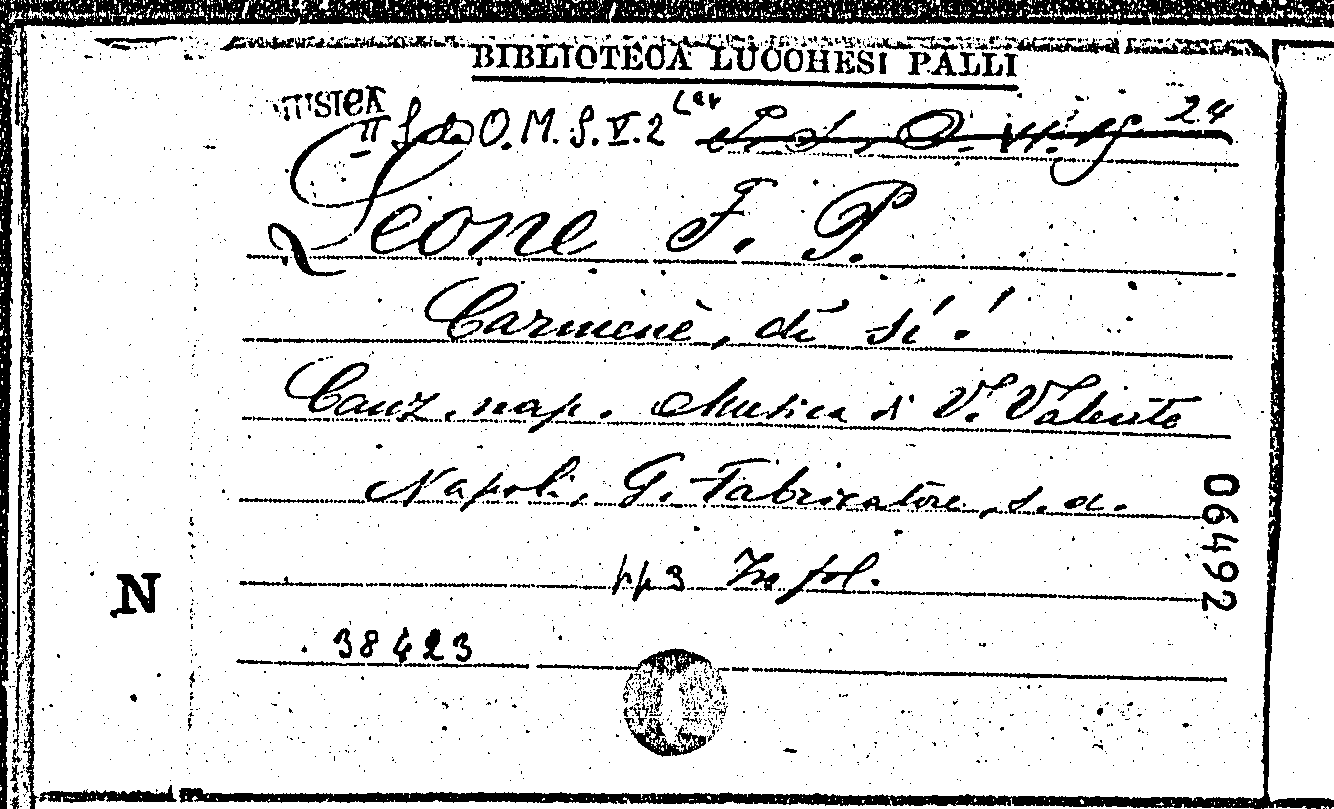 BIBLIOTECA LUCCHESI PALLI
MUSICA
II Sala O.M.S.V.2 24
Leone F. P.
Carmenè, dì sì!
Canz. nap. Musica di V. Valente
Napoli, G. Fabricatore, s. d.
pp 3 In fol.
06492
N
38423